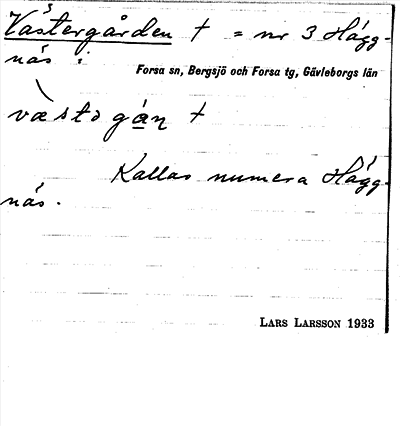 Västergården † = nr 3 Hägg-
näs :
Forsa sn, Bergsjö och Forsa tg, Gävleborgs län
væstə gán †
Kallas numera Hägg-
näs.
LARS LARSSON 1933